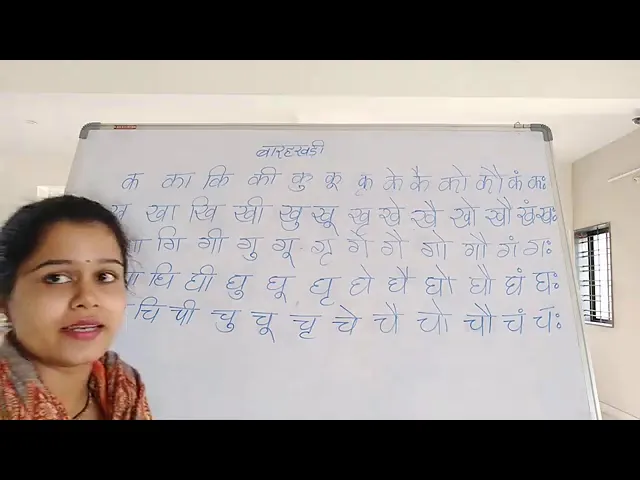 बारहखड़ी
क का कि की कु कू कृ के कै को कौ कं कः
ख खा खि खी खु खू खृ खे खै खो खौ खं खः
गि गी गु गू गृ गे गै गो गौ गं गः
घि घी घु घू घृ घे घै घो घौ घं घः
चि ची चु चू चृ चे चै चो चौ चं चः